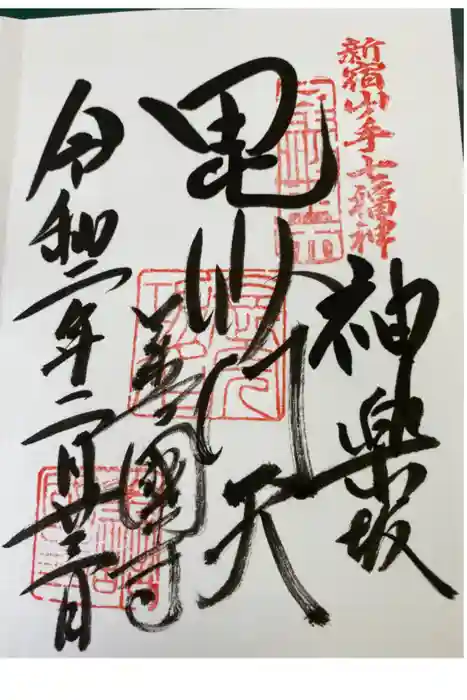 新宿山手七福神
神楽坂
毘沙門天
善國寺
令和二年二月廿三日